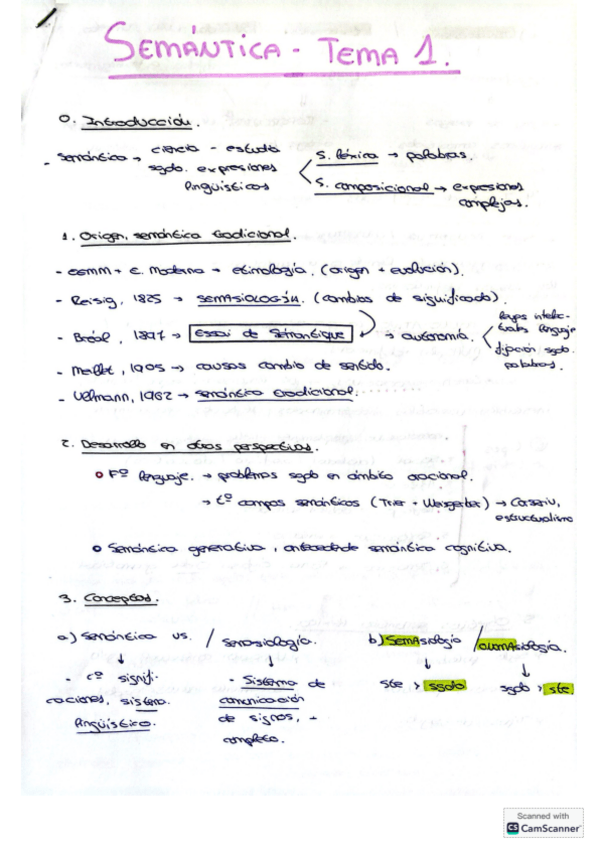 SEMÁNTICA - TEMA 1.
0. Introducción.
- Semántica → ciencia - estudia sgdo. expresiones lingüísticas
S. léxica → palabras.
S. composicional → expresiones complejas.
1. Origen, semántica tradicional.
- EEMM + E. Moderna → etimología. (origen + evolución).
- Reisig, 1825 → SEMASIOLOGÍA. (cambios de significado).
- Bréal, 1897 → Essai de Sémantique → autonomía.
leyes intelectuales lenguaje
fijación sgdo. palabras.
- Meillet, 1905 → causas cambio de sentido.
- Ullmann, 1962 → semántica tradicional.
2. Desarrollo en otras perspectivas.
Fº lenguaje. → problemas sgdo en ámbito oracional.
→ tº campos semánticos (Trier + Weisgerber) → Coseriu, estructuralismo
Semántica generativa, antecedente semántica cognitiva.
3. Conceptos.
a) Semántica vs. / semasiología.
- cº significaciones, sistema lingüístico.
- Sistema de comunicación de signos, + completo.
b) SEMAsiología / ONOMAsiología.
ste > sgdo
sgdo > ste.
Scanned with
CS CamScanner